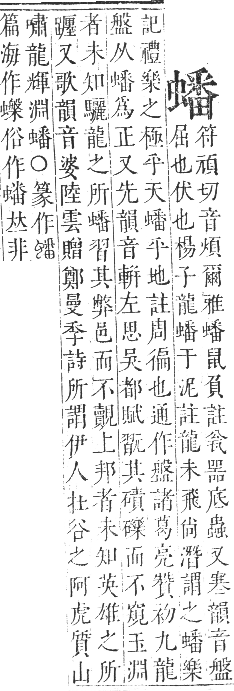 蟠
符頑切音煩爾雅蟠鼠負註瓮器底蟲又寒韻音盤
屈也伏也楊子龍蟠于泥註龍未飛尚潛謂之蟠樂
記禮樂之極乎天蟠乎地註周徧也通作盤諸葛亮贊初九龍
盤从蟠爲正又先韻音軿左思吳都賦翫其磧礫而不窺玉淵
者未知驪龍之所蟠習其弊邑而不覿上邦者未知英雄之所
躔又歌韻音婆陸雲贈鄭曼季詩所謂伊人在谷之阿虎質山
嘯龍輝淵蟠○篆作
篇海作俗作蟠𠀤非